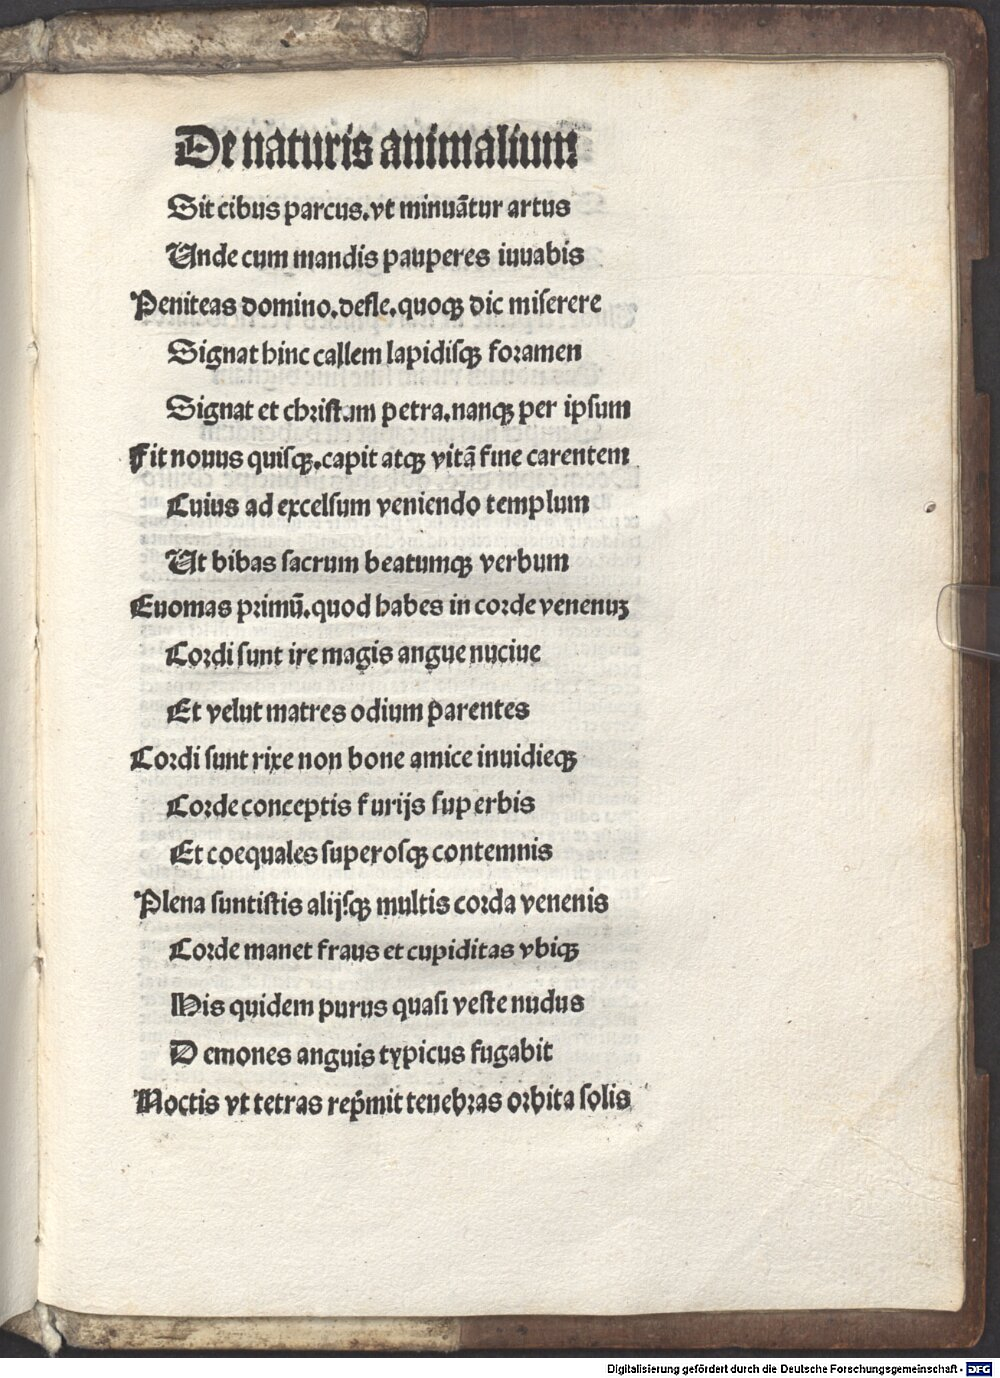 De naturis animalium
Sit cibus parcus.vt minuãtur artus
Unde cum mandis pauperes iuuabis
Peniteas domino.defle.quoqꝫ dic miserere
Signat hinc callem lapidisqꝫ foramen
Signat et christum petra.nanqꝫ per ipsum
Fit nouus quisqꝫ.capit atqꝫ vitã fine carentem
Cuius ad excelsum veniendo templum
Ut bibas sacrum beatumqꝫ verbum
Euomas primũ.quod habes in corde venenuꝫ
Cordi sunt ire magis angue nuciue
Et velut matres odium parentes
Cordi sunt rixe non bone amice inuidieqꝫ
Corde conceptis furijs superbis
Et coequales superosqꝫ contemnis
Plena sunt istis alijsqꝫ multis corda venenis
Corde manet fraus et cupiditas vbiqꝫ
His quidem purus quasi veste nudus
Demones anguis typicus fugabit
Noctis vt tetras rep̃mit tenebras orbita solis
Digitalisierung gefördert durch die Deutsche Forschungsgemeinschaft - DFG